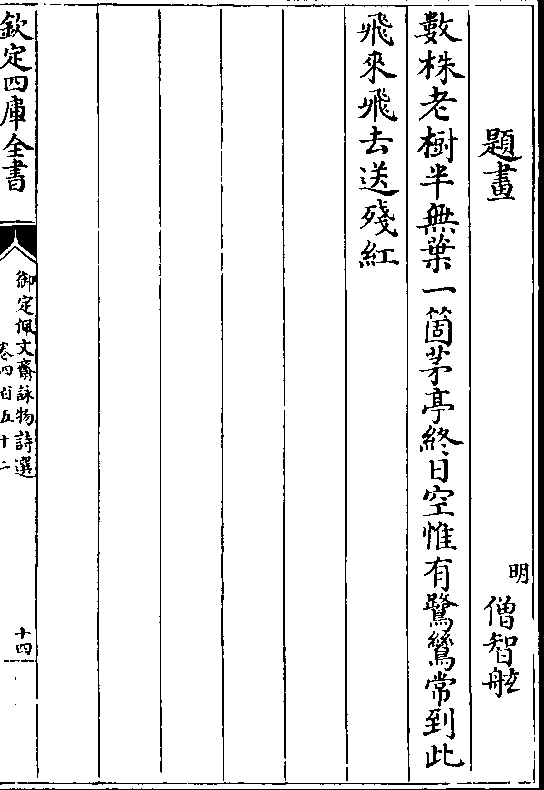 題畫
明 僧智舷
數株老樹半無葉一箇茅亭終日空惟有鷺鷥常到此
飛來飛去送殘紅
欽定四庫全書
御定佩文齋詠物詩選
卷四百五十二
十四